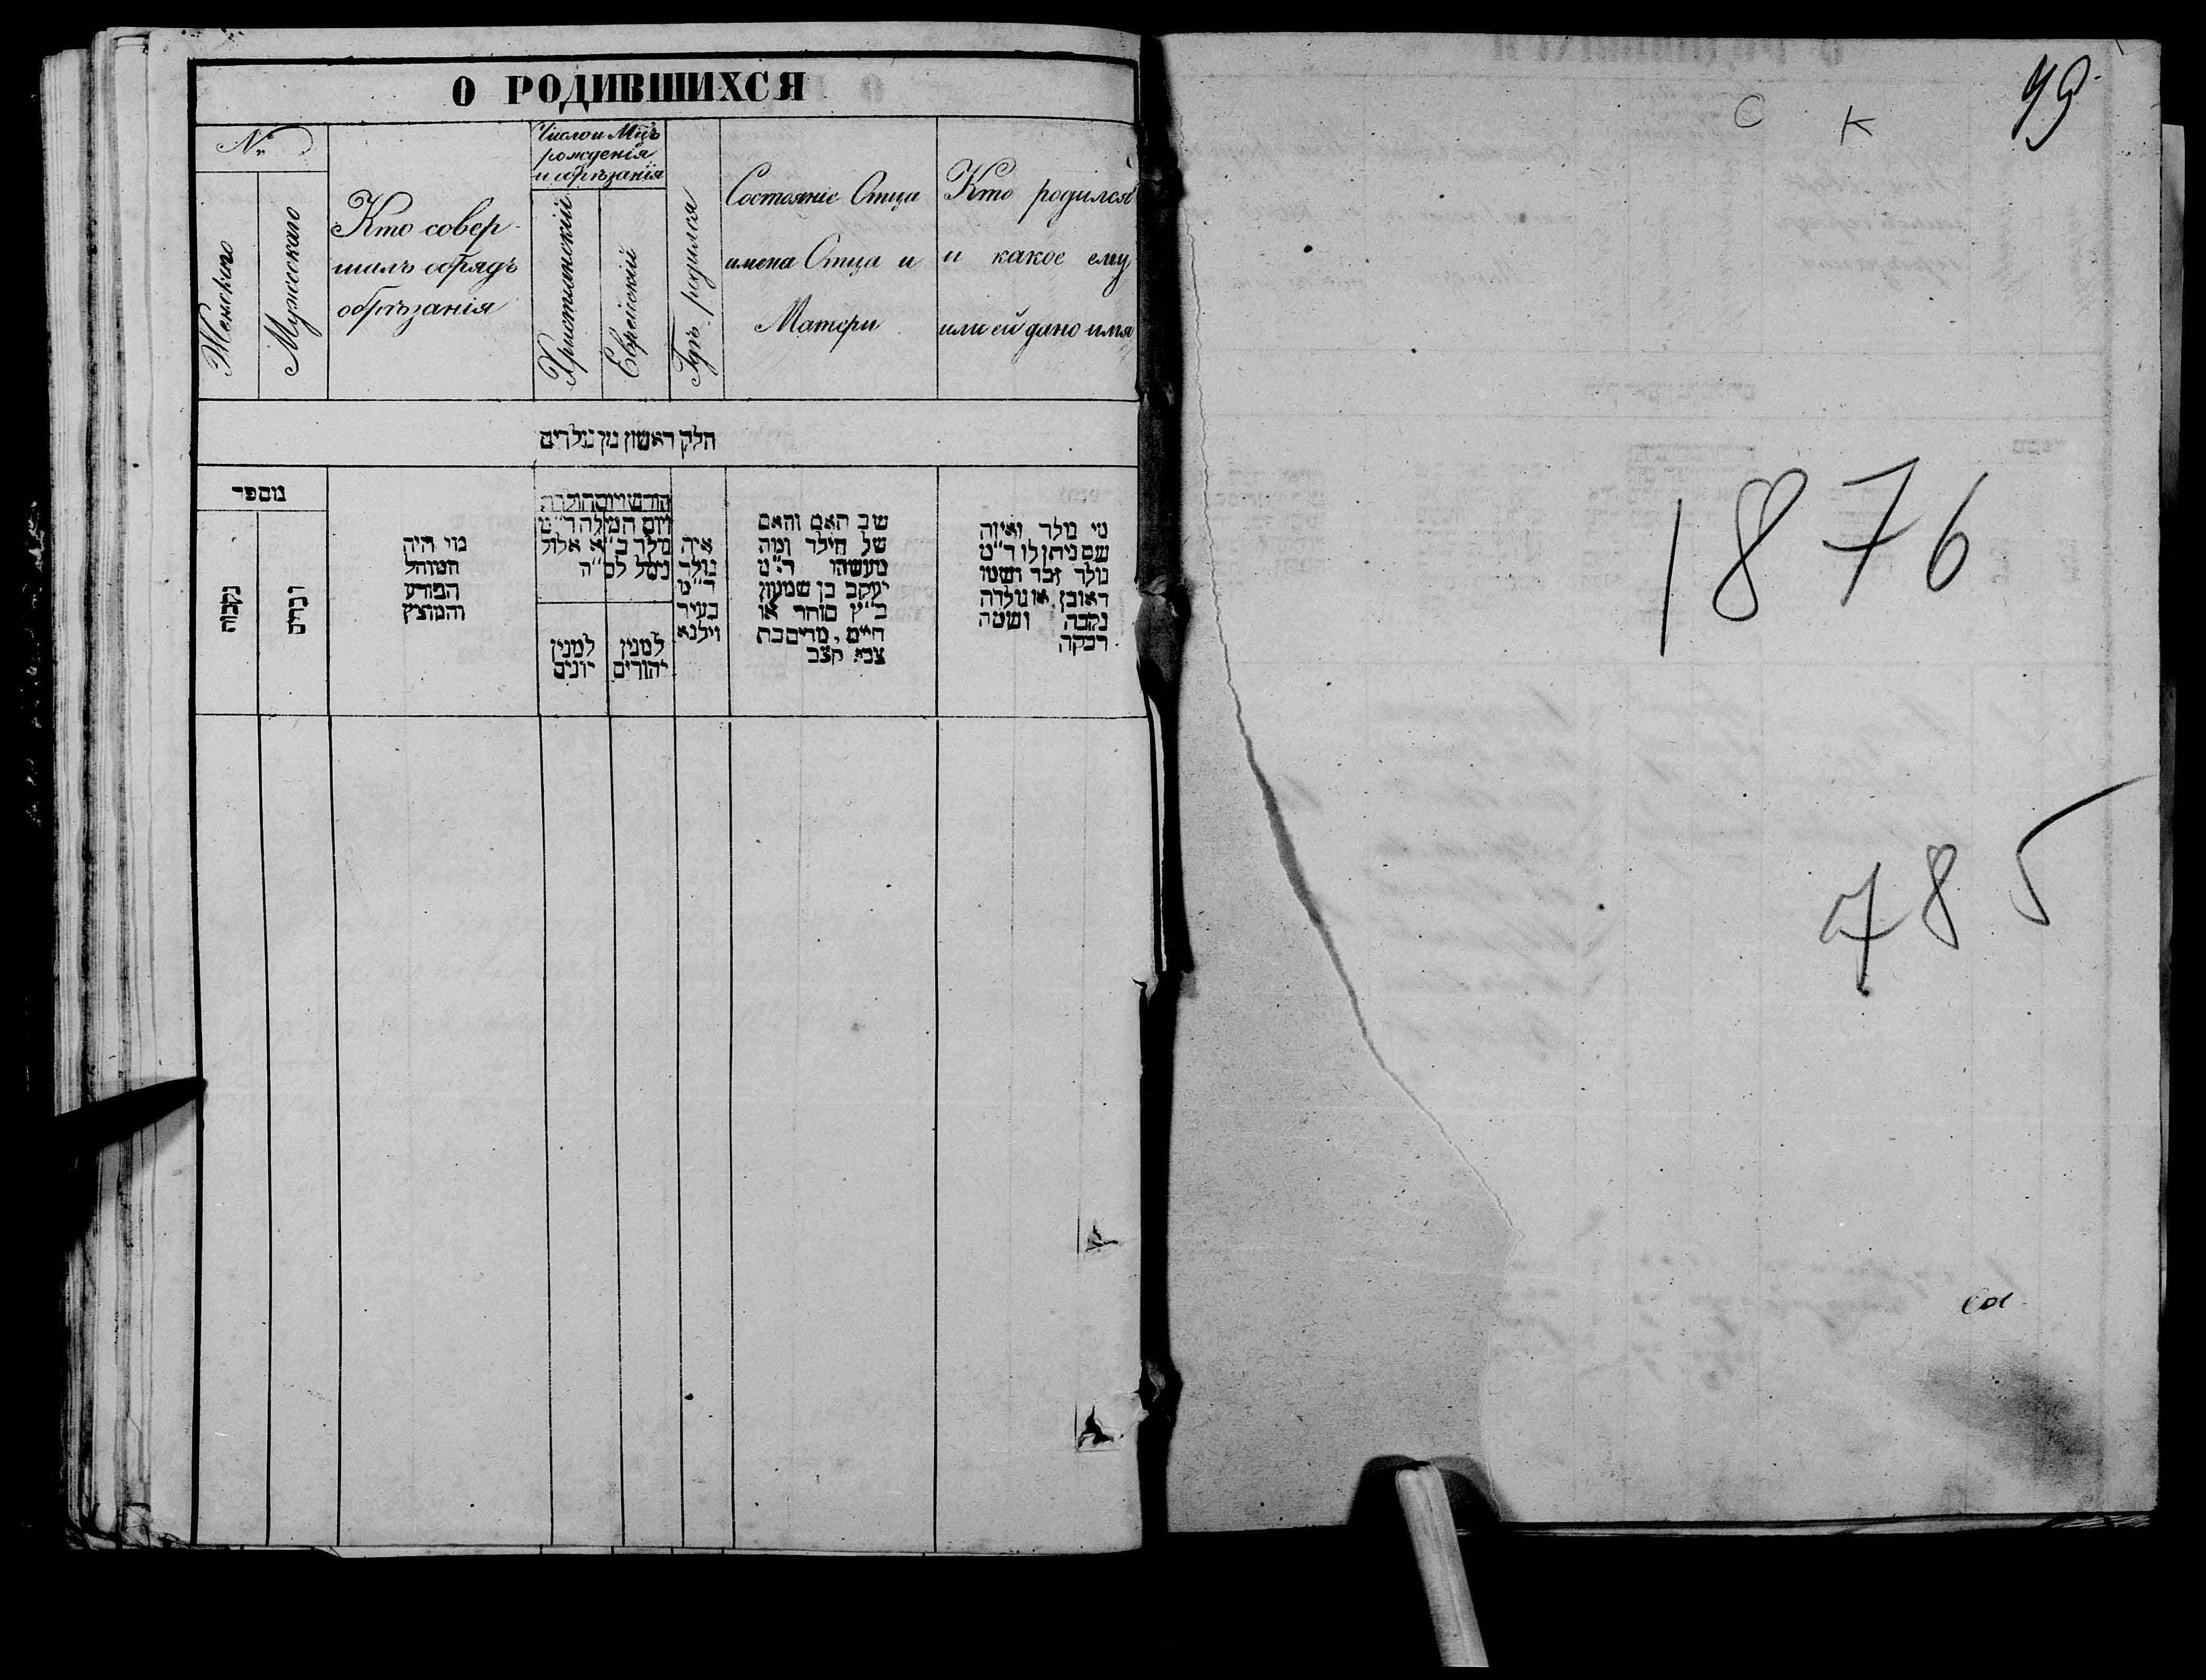 О РОДИВШИХСЯ
№
Женскаго
Мужескаго
Кто совер-
шалъ обрядъ
обрѣзанія
Число и Мцъ
рожденія
и обрѣзанія
Христіянскій
Еврейскій
Гдѣ родился
Состояніе Отца
имена Отца и
Матери
Кто родился
и какое ему
или ей дано имя
חלק ראשון מן נולדים
מספר
נקבות
זכרים
מי היה
המוהל
הפורע
והמוצץ
חודש ויום הולדת
ויום המילה ד״מ
נולד ב״א אלול
נימל לס״ה
למנין
יונים
למנין
יהודים
איה
נולד
ד״מ
בעיר
ווילנא
שב האם והאם
של הילד ומה
מעשהו ד״מ
יעקב בן שמעון
כ״ץ סוחר או
חיים, מרים בת
צבי קצב
מי נולד ואיזה
שם ניתן לו ד״מ
נולד זכר ושמו
ראובן, או נולדה
נקבה ושמה
רבקה
С К
49
1876
785